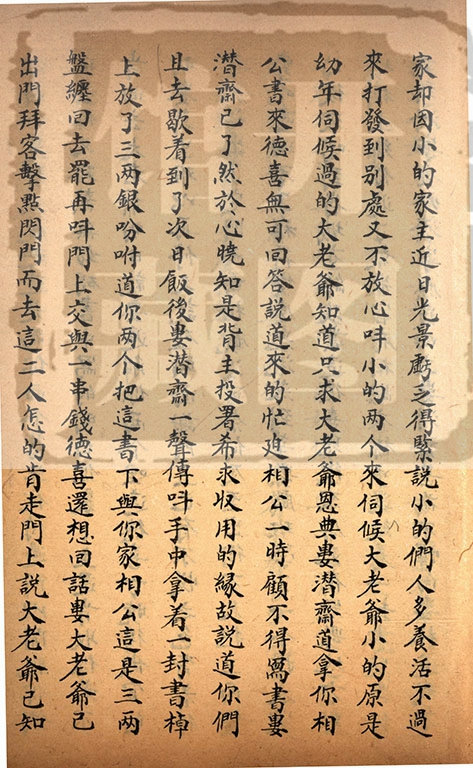 家却因小的家主近日光景虧乏得緊說小的們人多養活不過
來打發到別處又不放心呌小的两个來伺候大老爺小的原是
幼年伺候過的大老爺知道只求大老爺恩典婁潜齋道拿你相
公書來德喜無可回答說道來的忙迫相公一時顧不得寫書婁
潜齋已了然於心曉知是背主投署希求收用的縁故說道你們
且去歇着到了次日飯後婁潜齋一聲傳呌手中拿着一封書棹
上放了三两銀吩咐道你两个把這書下與你家相公這是三两
盤纏回去罷再呌門上交與一串錢德喜還想回話婁大老爺已
出門拜客擊點閃門而去這二人怎的肯走門上說大老爺已知